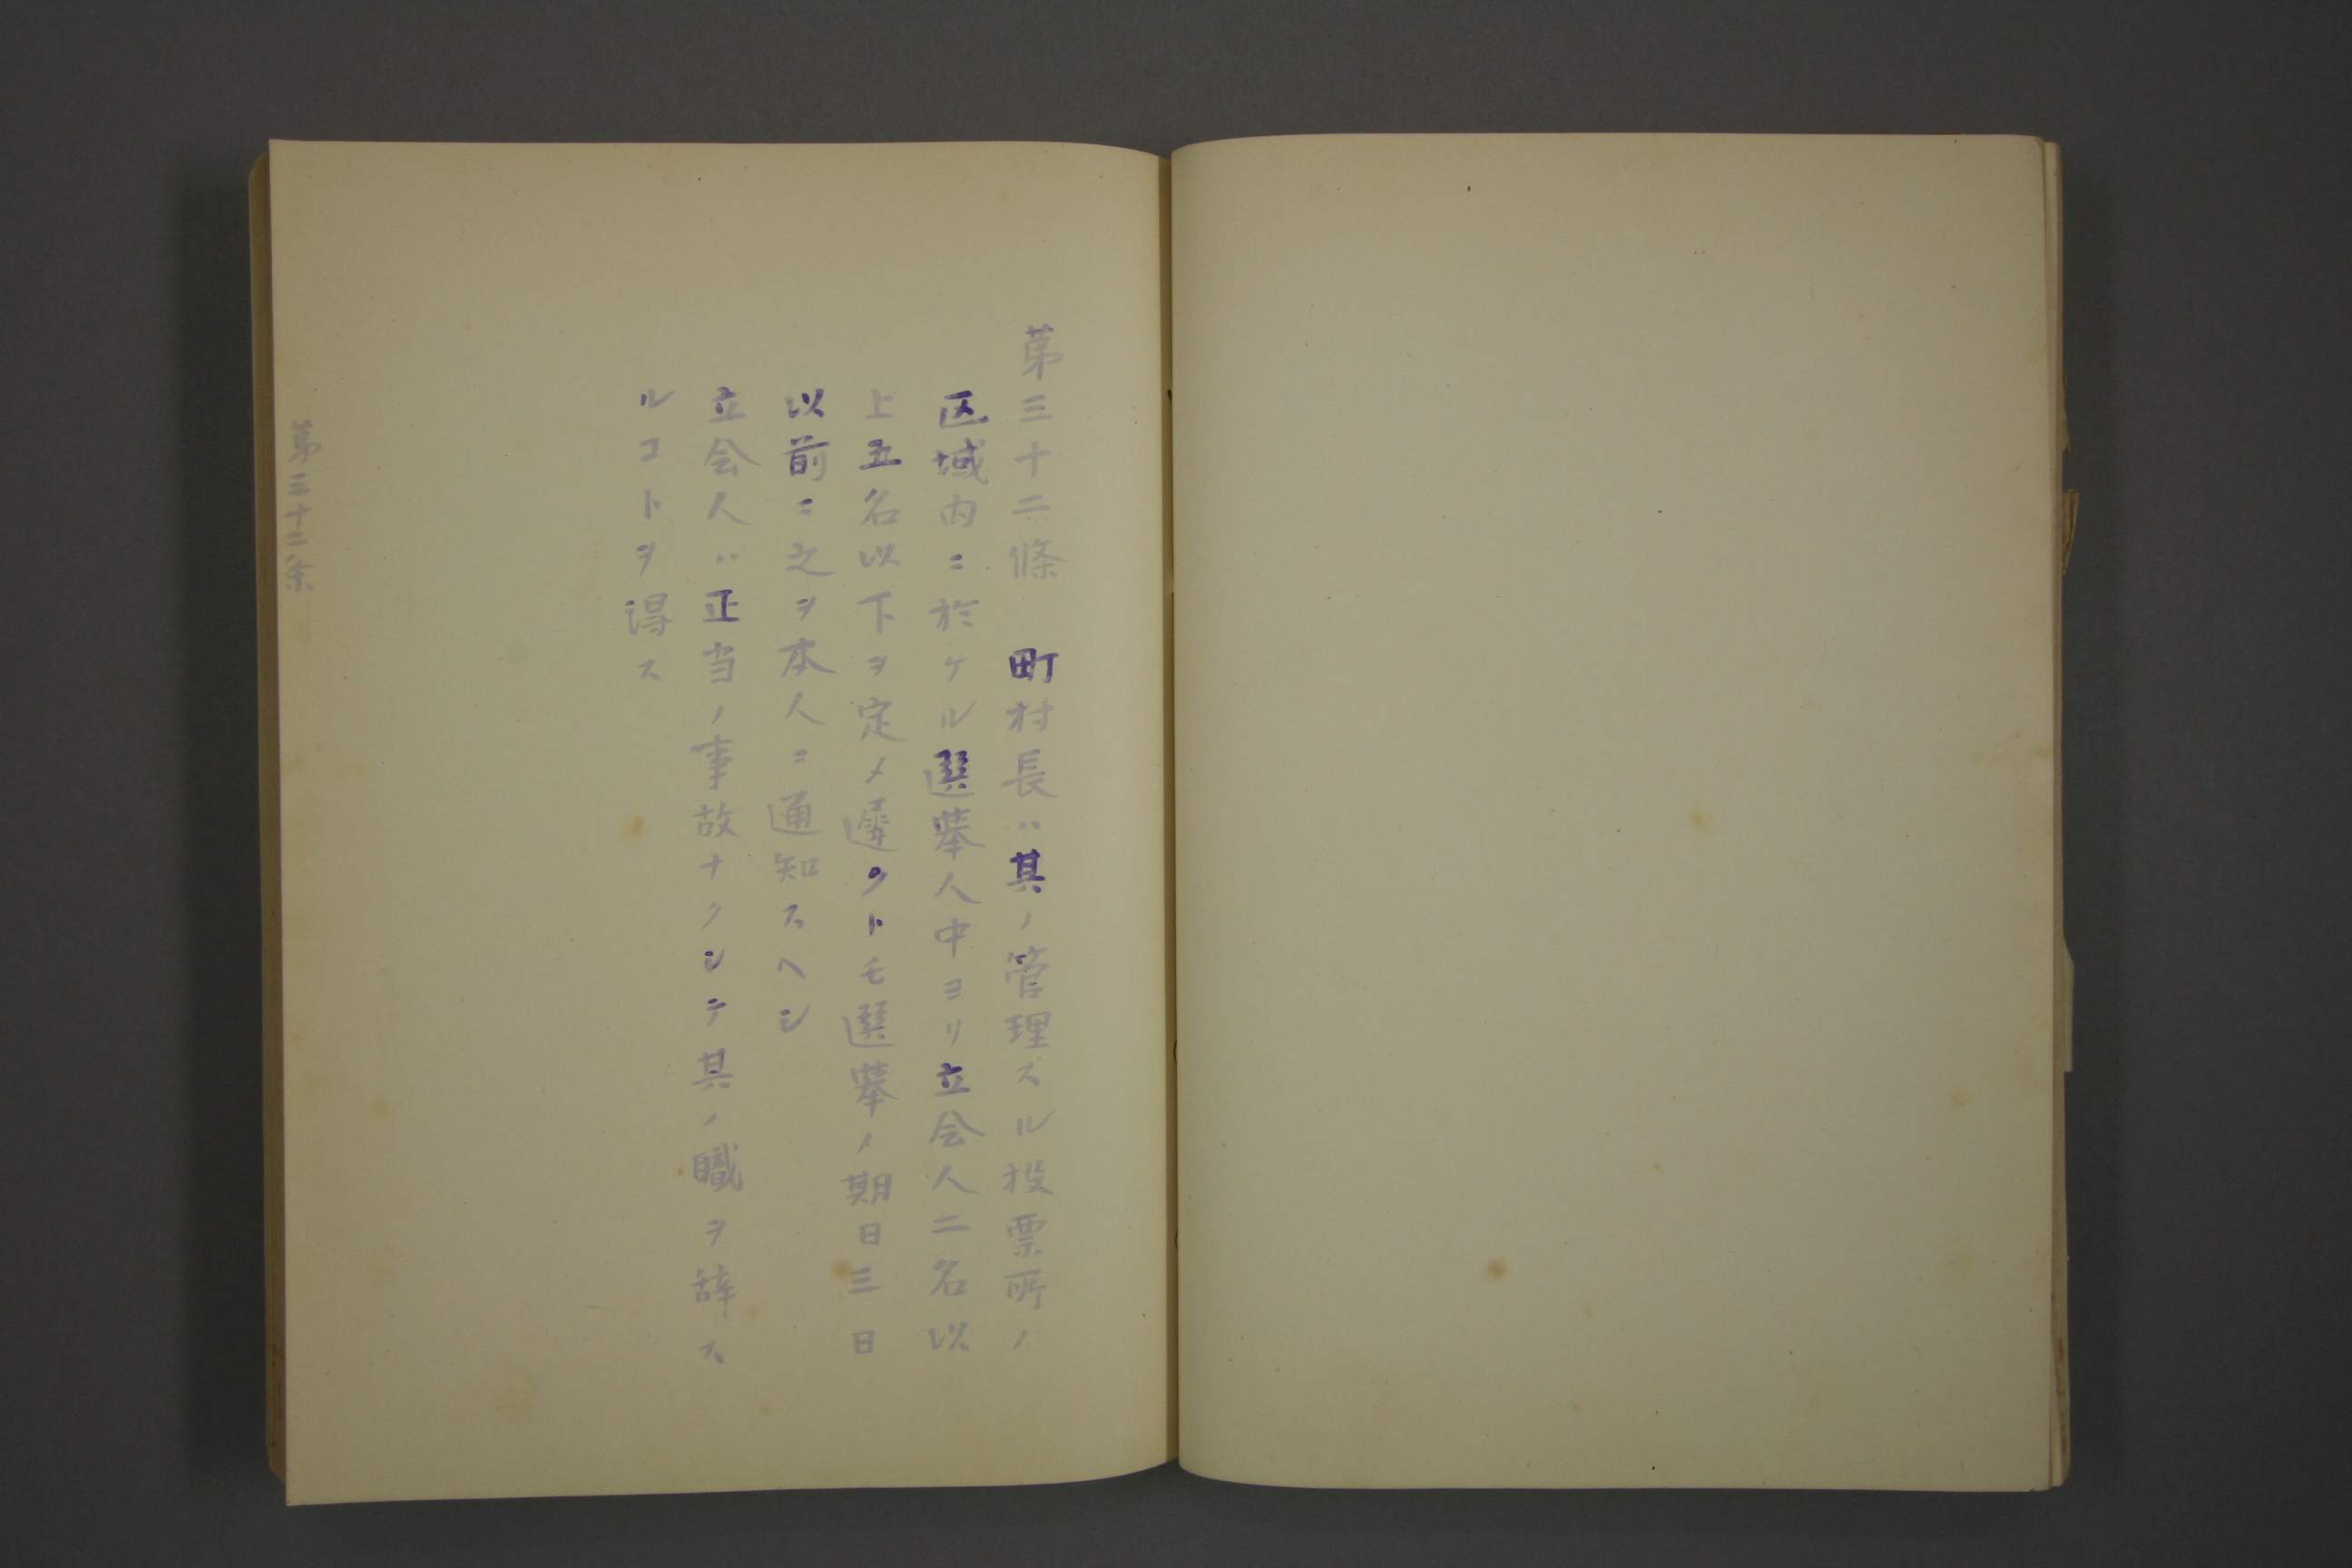 第三十二條　町村長ハ其ノ管理スル投票所ノ
区域内ニ於ケル選挙人中ヨリ立会人二名以
上五名以下ヲ定メ遅クトモ選挙ノ期日三日
以前ニ之ヲ本人ニ通知スヘシ
立会人ハ正当ノ事故ナクシテ其ノ職ヲ辞ス
ルコトヲ得ス
第三十二条